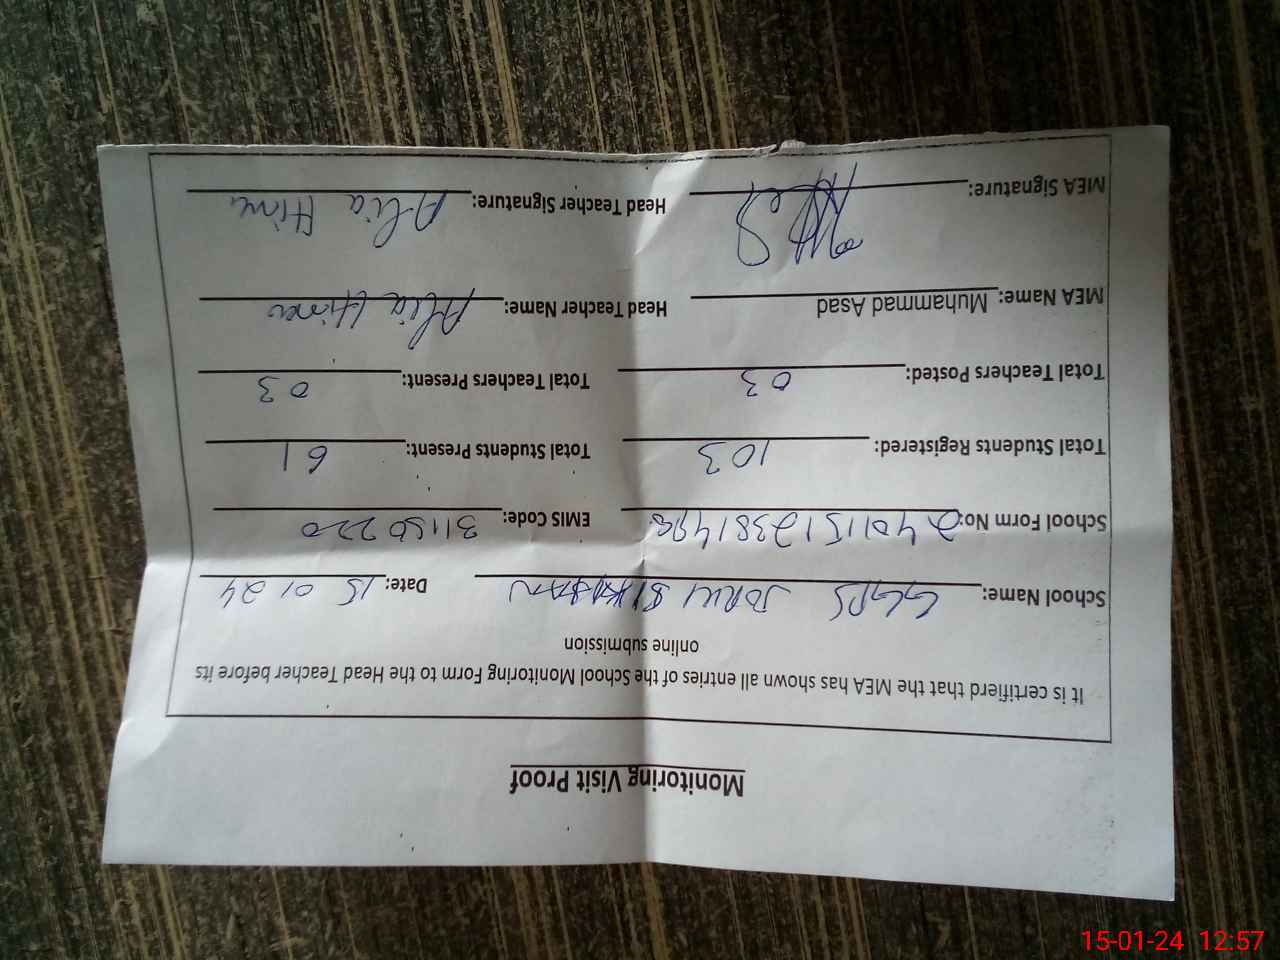 Monitoring Visit Proof
It is certifierd that the MEA has shown all entries of the School Monitoring Form to the Head Teacher before its
online submission
School Name: GGPS Date: 15 01 24
School Form No: EMIS Code: 31150220
Total Students Registered: 103 Total Students Present: 61
Total Teachers Posted: 03 Total Teachers Present: 03
MEA Name: Muhammad Asad Head Teacher Name: Alia
MEA Signature: Head Teacher Signature: Alia
15-01-24 12:57